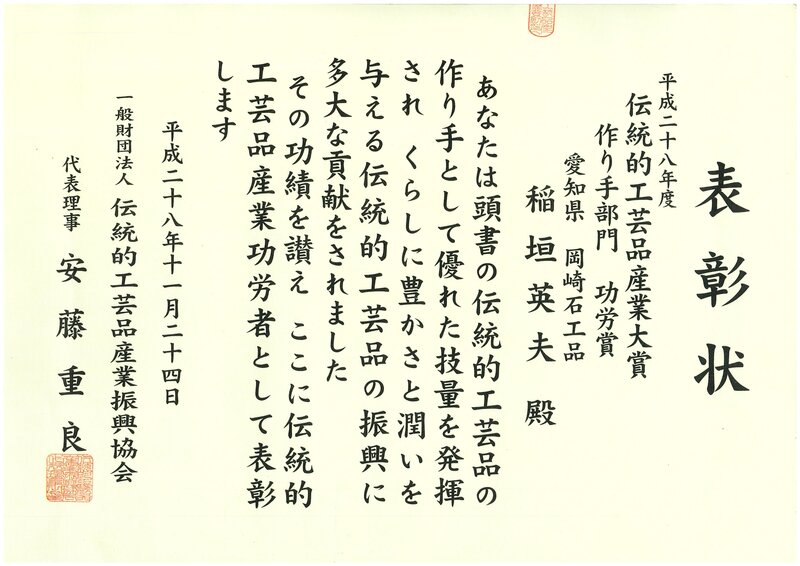 表彰状
平成二十八年度
伝統的工芸品産業大賞
作り手部門　功労賞
愛知県　岡崎石工品
稲垣英夫殿
あなたは頭書の伝統的工芸品の
作り手として優れた技量を発揮
され　くらしに豊かさと潤いを
与える伝統的工芸品の振興に
多大な貢献をされました
その功績を讃え　ここに伝統的
工芸品産業功労者として表彰
します
平成二十八年十一月二十四日
一般財団法人　伝統的工芸品産業振興協会
代表理事　安藤重良